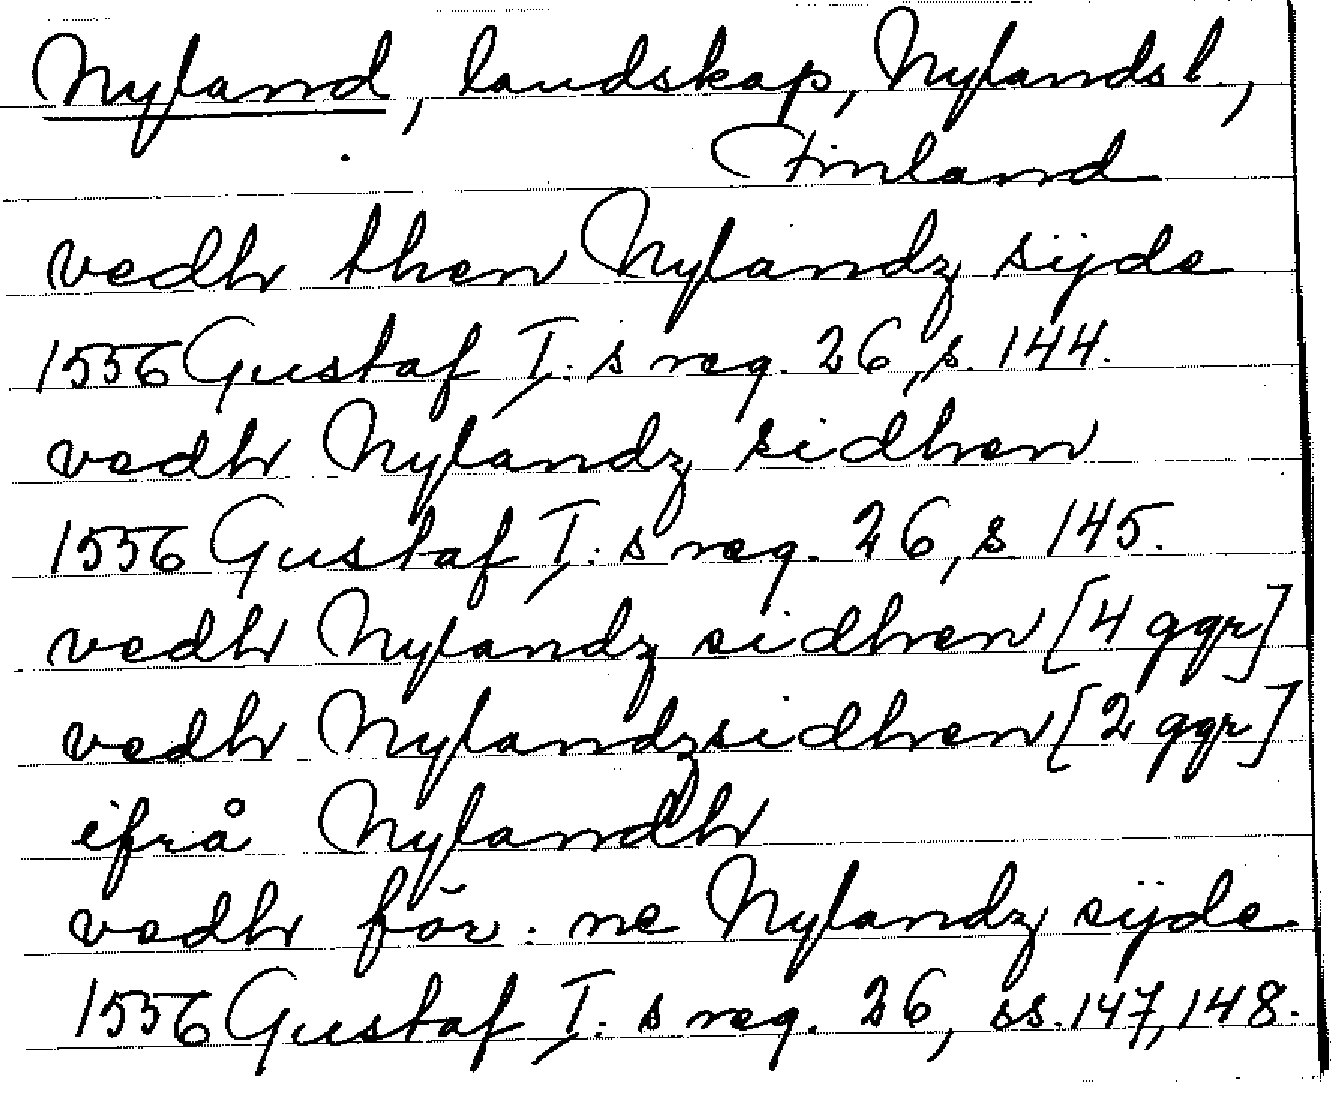 Nyland, landskap, Nylandsl,
Finland
vedh then Nylandz sijde
1556 Gustaf I:s reg. 26, s. 144.
vedh Nylandz sidhen
1556 Gustaf I:s reg. 26, s 145.
vedh Nylandz sidhen [4 ggr]
vedh Nylandzsidhen [2 ggr]
ifrå Nylandh
vedh för:ne Nylandz sijde
1556 Gustaf I:s reg. 26, ss. 147, 148.